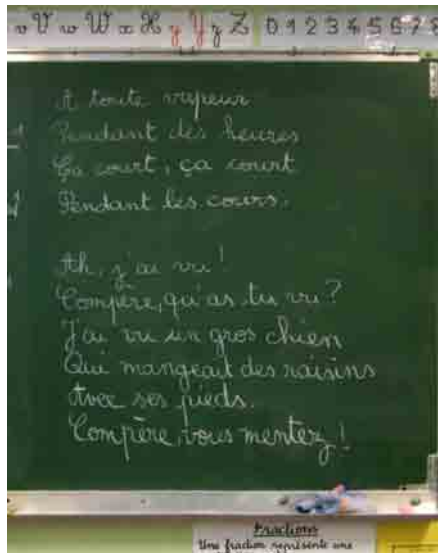 v V w W x X y Y z Z 0 1 2 3 4 5 6 7 8
A toute vapeur
Pendant des heures
Ça court, ça court
Pendant les cours.
Ah, j'ai vu!
Compère, qu'as-tu vu?
J'ai vu un gros chien
Qui mangeait des raisins
Avec ses pieds.
Compère, vous mentez!
Fractions
Une fraction représente une